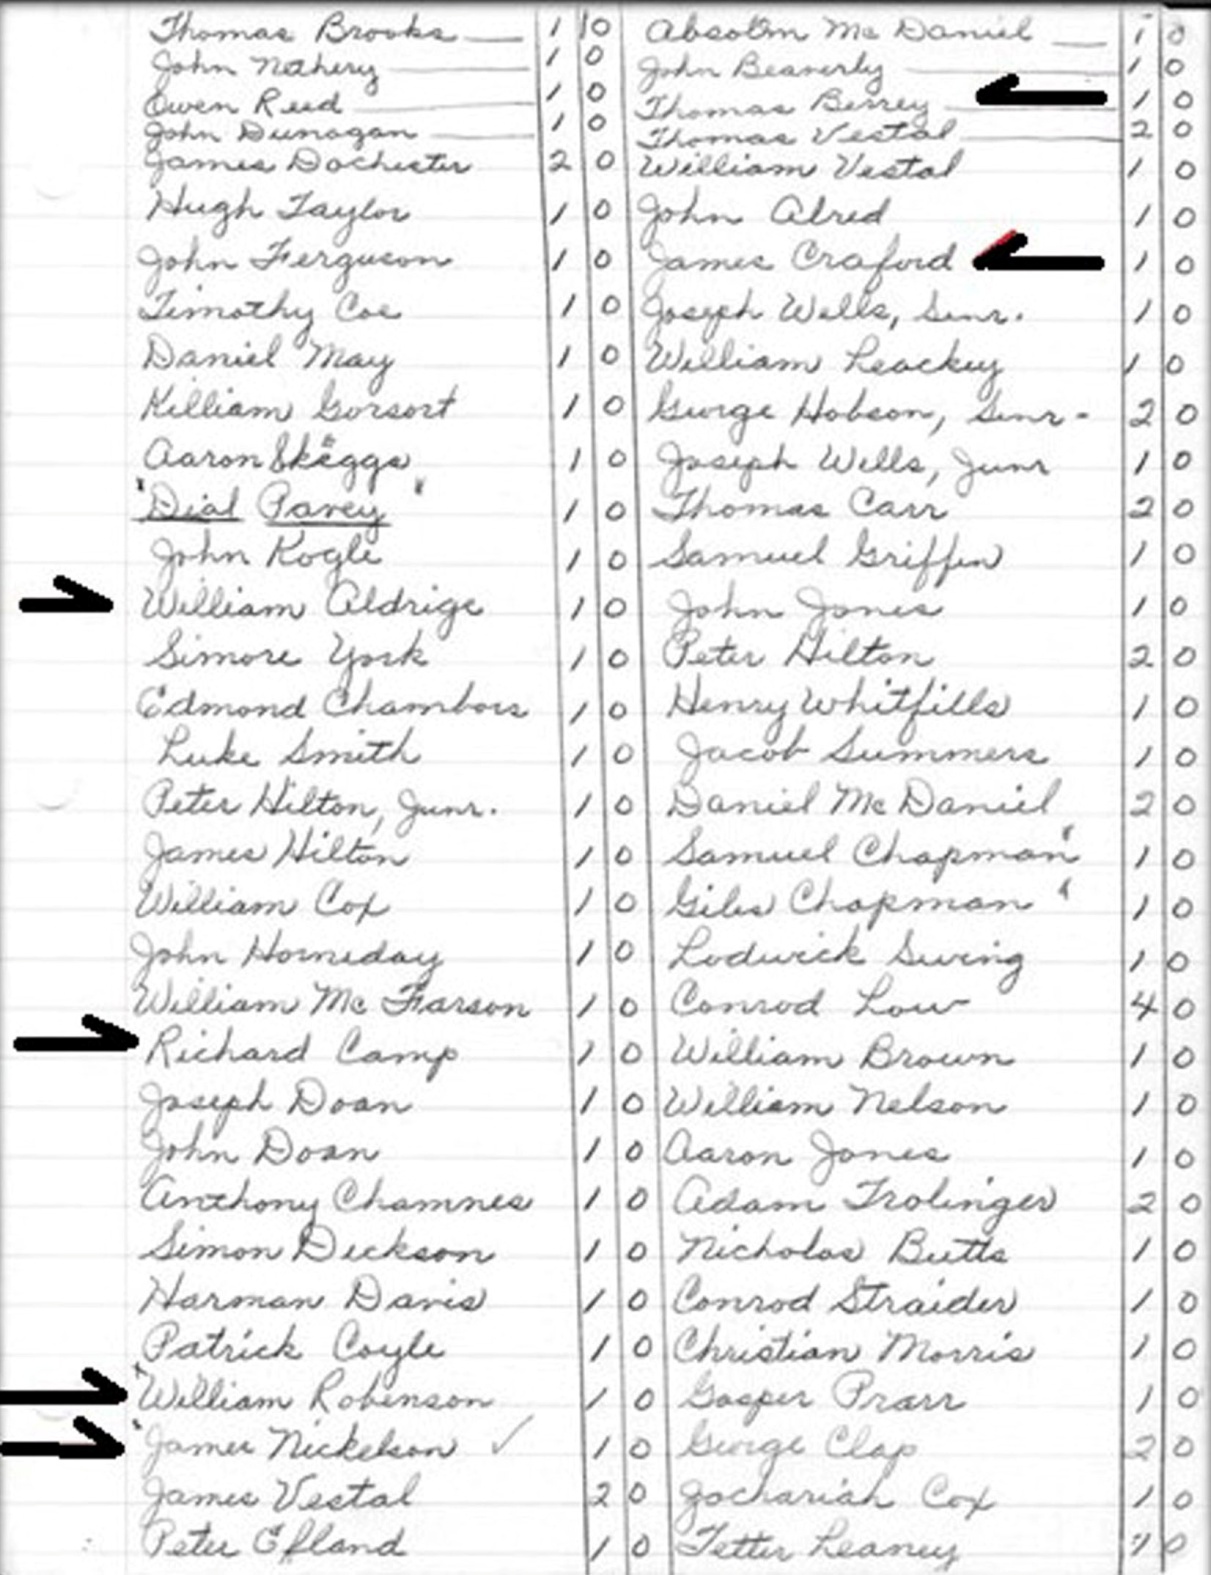 Thomas Brooks 1 0
John Nethery 1 0
Owen Reed 1 0
John Dunagan 1 0
James Dochester 2 0
Hugh Taylor 1 0
John Ferguson 1 0
Timothy Coe 1 0
Daniel May 1 0
Killiam Gorsort 1 0
Aaron Skeggs 1 0
"Dial Pavey" 1 0
John Kogle 1 0
William Aldrige 1 0
Simore York 1 0
Edmond Chambors 1 0
Luke Smith 1 0
Peter Hilton, Junr. 1 0
James Hilton 1 0
William Cox 1 0
John Horneday 1 0
William Mc Farson 1 0
Richard Camp 1 0
Joseph Doan 1 0
John Doan 1 0
Anthony Chamnes 1 0
Simon Dickson 1 0
Harman Davis 1 0
Patrick Coyle 1 0
William Robenson 1 0
James Nickelson ✓ 1 0
James Vestal 2 0
Peter Efland 1 0
Absolm Mc Daniel 1 0
John Beaverly 1 0
Thomas Berrey 1 0
Thomas Vestal 2 0
William Vestal 1 0
John Alred 1 0
James Craford 1 0
Joseph Wells, Senr. 1 0
William Leackey 1 0
George Hobson, Senr- 2 0
Joseph Wells, Junr 1 0
Thomas Carr 2 0
Samuel Griffin 1 0
John Jones 1 0
Peter Hilton 2 0
Henry Whitfills 1 0
Jacob Summers 1 0
Daniel Mc Daniel 2 0
Samuel Chapman 1 0
Giles Chapman 1 0
Lodwick Swing 1 0
Conrod Low 4 0
William Brown 1 0
William Nelson 1 0
Aaron Jones 1 0
Adam Trolinger 2 0
Nicholas Butts 1 0
Conrod Straider 1 0
Christian Morris 1 0
Gasper Prarr 1 0
George Clap 2 0
Zachariah Cox 1 0
Tetter Leaney 1 0